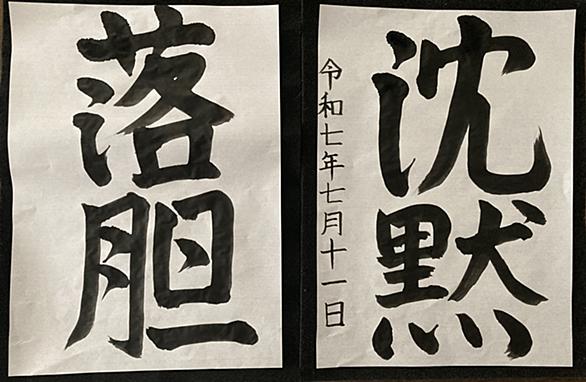 沈黙
令和七年七月十一日
落胆